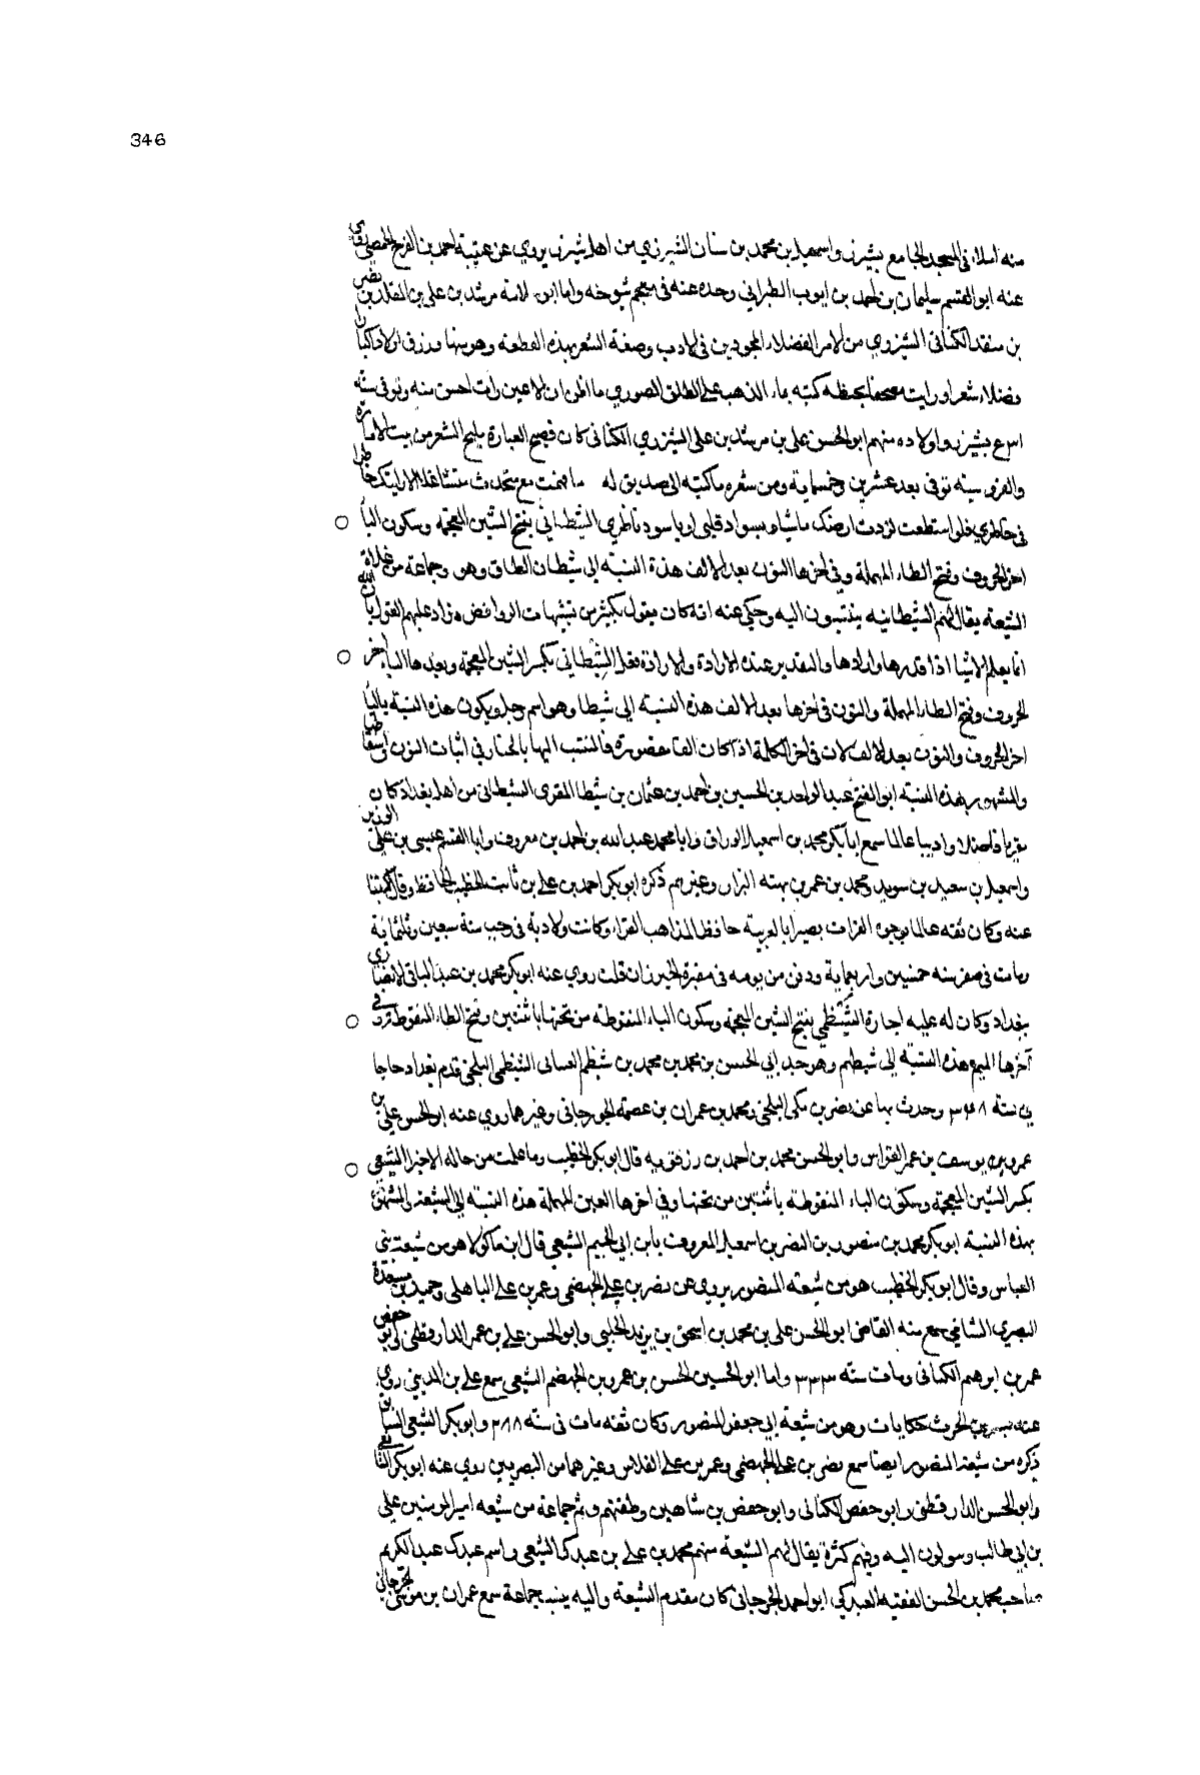 346
منه املاء فى المسجد الجامع بشيزر واسمعيل بن محمد بن سنان الشيزري من اهل شيزر يروي عن عتبة احمد بن الفرج الحمصى روى
عنه ابو القسم سليمان بن احمد بن ايوب الطبراني وحده عنه فى معجم شيوخه واما ابو سلامة مرشد بن على بن المقلد بن نصر
بن منقذ الكنانى الشيزري من الامرا الفضلاء المجودين فى الادب وصنعة الشعر بهذه القطعة وهو منها ورزق اولادا كبارا
فضلاء شعرا ورايت مصحفا بخطه كتبه بماء الذهب على الطلق الصوري ما اظن ان الاعين رات احسن منه وتوفى سنة
بشيزر واولاده منهم ابو الحسن على بن مرشد بن على الشيزري الكنانى كان فصيح العبارة مليح الشعر من بيت الامارة
والفروسية توفى بعد عشرين وخمسماية ومن شعره ما كتبه الى صديق له ما فهت مع متحدث متشاغلا الا رايتك خاطرا
فى خاطري فلو استطعت لزرت ارضك ماشيا بسواد قلبى او باسود ناظري الشيطانى بفتح الشين المعجمة وسكون اليا
اخر الحروف وفتح الطاء المهملة وفى اخرها النون بعد الالف هذه النسبة الى شيطان الطاق وهو وجماعة من غلاة
الشيعة يقال لهم الشيطانيه ينتسبون اليه وحكي عنه انه كان يقول بكثير من تشبيهات الروافض وزاد عليهم القول بان الله
انما يعلم الاشيا اذا قدرها وارادها والتقدير عنده الارادة والارادة فعل الشيطانى بكسر الشين المعجمة وبعدها اليا اخر
الحروف وفتح الطاء المهملة والنون فى اخرها بعد الالف هذه النسبة الى شيطا وهو اسم جد ويكون هذه النسبة باليا
اخر الحروف والنون بعد الالف لان فى اخر الكلمة اذا كان الفا مقصورة فالمنتسب اليها بالخيار في اثبات النون واسقاطها
والمشهور بهذه النسبة ابو الفتح عبد الواحد بن الحسين بن احمد بن عثمان بن شيطا المقرى الشيطانى من اهل بغداد كان
مقريا فاضلا واديبا عالما سمع ابا بكر محمد بن اسمعيل الوراق وابا محمد عبد الله بن احمد بن معروف وابا القسم عيسى بن على الوزير
واسمعيل بن سعيد بن سويد ومحمد بن عمر بن بهته البزار وغيرهم ذكره ابو بكر احمد بن على بن ثابت الخطيب الحافظ وقال كتبنا
عنه وكان ثقه عالما بوجوه القرات بصيرا بالعربية حافظا لمذاهب القراء وكانت ولادته فى رجب سنة سبعين وثلثماية
ومات فى صفر سنه خمسين واربعماية ودفن من يومه فى مقبرة الخيزران قلت روي عنه ابو بكر محمد بن عبد الباقى الانصاري
بغداد وكان له عليه اجازة الشيظمي بفتح الشين المعجمة وسكون الياء المنقوطة من تحتها باثنتين وفتح الطاء المنقوطة وفى
آخرها الميم هذه النسبة الى شيظم وهو جد ابي الحسن بن محمد بن محمد بن شيظم الغسانى الشيظمى البلخى قدم بغداد حاجا
فى سنة ٣٤٨ وحدث بها عن نصر بن مكى البلخى ومحمد بن عمران بن عصمة الجوزجانى وغيرهما روي عنه ابو الحسن على بن
عمرو بن يوسف بن عمر القواس وابو الحسن محمد بن احمد بن رزقويه قال ابو بكر الخطيب وما علمت من حاله الا خيرا الشيعى
بكسر الشين المعجمة وسكون الياء المنقوطة باثنتين من تحتها وفي اخرها العين المهملة هذه النسبة الى الشيعة والمشهور
بهذه النسبة ابو بكر محمد بن منصور بن النضر بن اسمعيل المعروف بابن ابي الجهم الشيعي قال ابن ماكولا هو من شيعة بنى
العباس وقال ابو بكر الخطيب هو من شيعة المنصور يروي عن نصر بن على الجهضمى وعمر بن على الباهلى وحميد بن مسعدة
البصري الشافي سمع منه القاضى ابو الحسن على بن محمد بن اسحق بن يزيد الحلبى وابو الحسن على بن عمر الدارقطنى وابو حفص
عمر بن ابرهيم الكتانى ومات سنة ٣٣٣ واما ابو الحسين الحسن بن عمرو بن الجهضم الشيعى سمع على بن المدينى روى
عنه بن الحرث حكايات وهو من شيعة ابي جعفر المنصور وكان ثقه مات فى سنه ٢٨٨ وابو بكر الشيعى السابق
ذكره من شيعة المنصور ايضا سمع نصر بن على الجهضمى وعمر بن على الفلاس وغيرهما من البصريين روي عنه ابو بكر الشافعى
وابو الحسن الدارقطنى وابو حفص الكتانى وابو حفص بن شاهين وطبقتهم وثم جماعة من شيعه امير المومنين على
بن ابي طالب وسولون اليه وفيهم كثرة يقال لهم الشيعة منهم محمد بن على بن عبدك الشيعى واسم عبدك عبد الكريم
صاحب محمد بن الحسن الفقيه العبدكي ابو احمد الجرجانى كان مقدم الشيعة واليه ينسب جماعة سمع عمران بن موسى الجرجانى